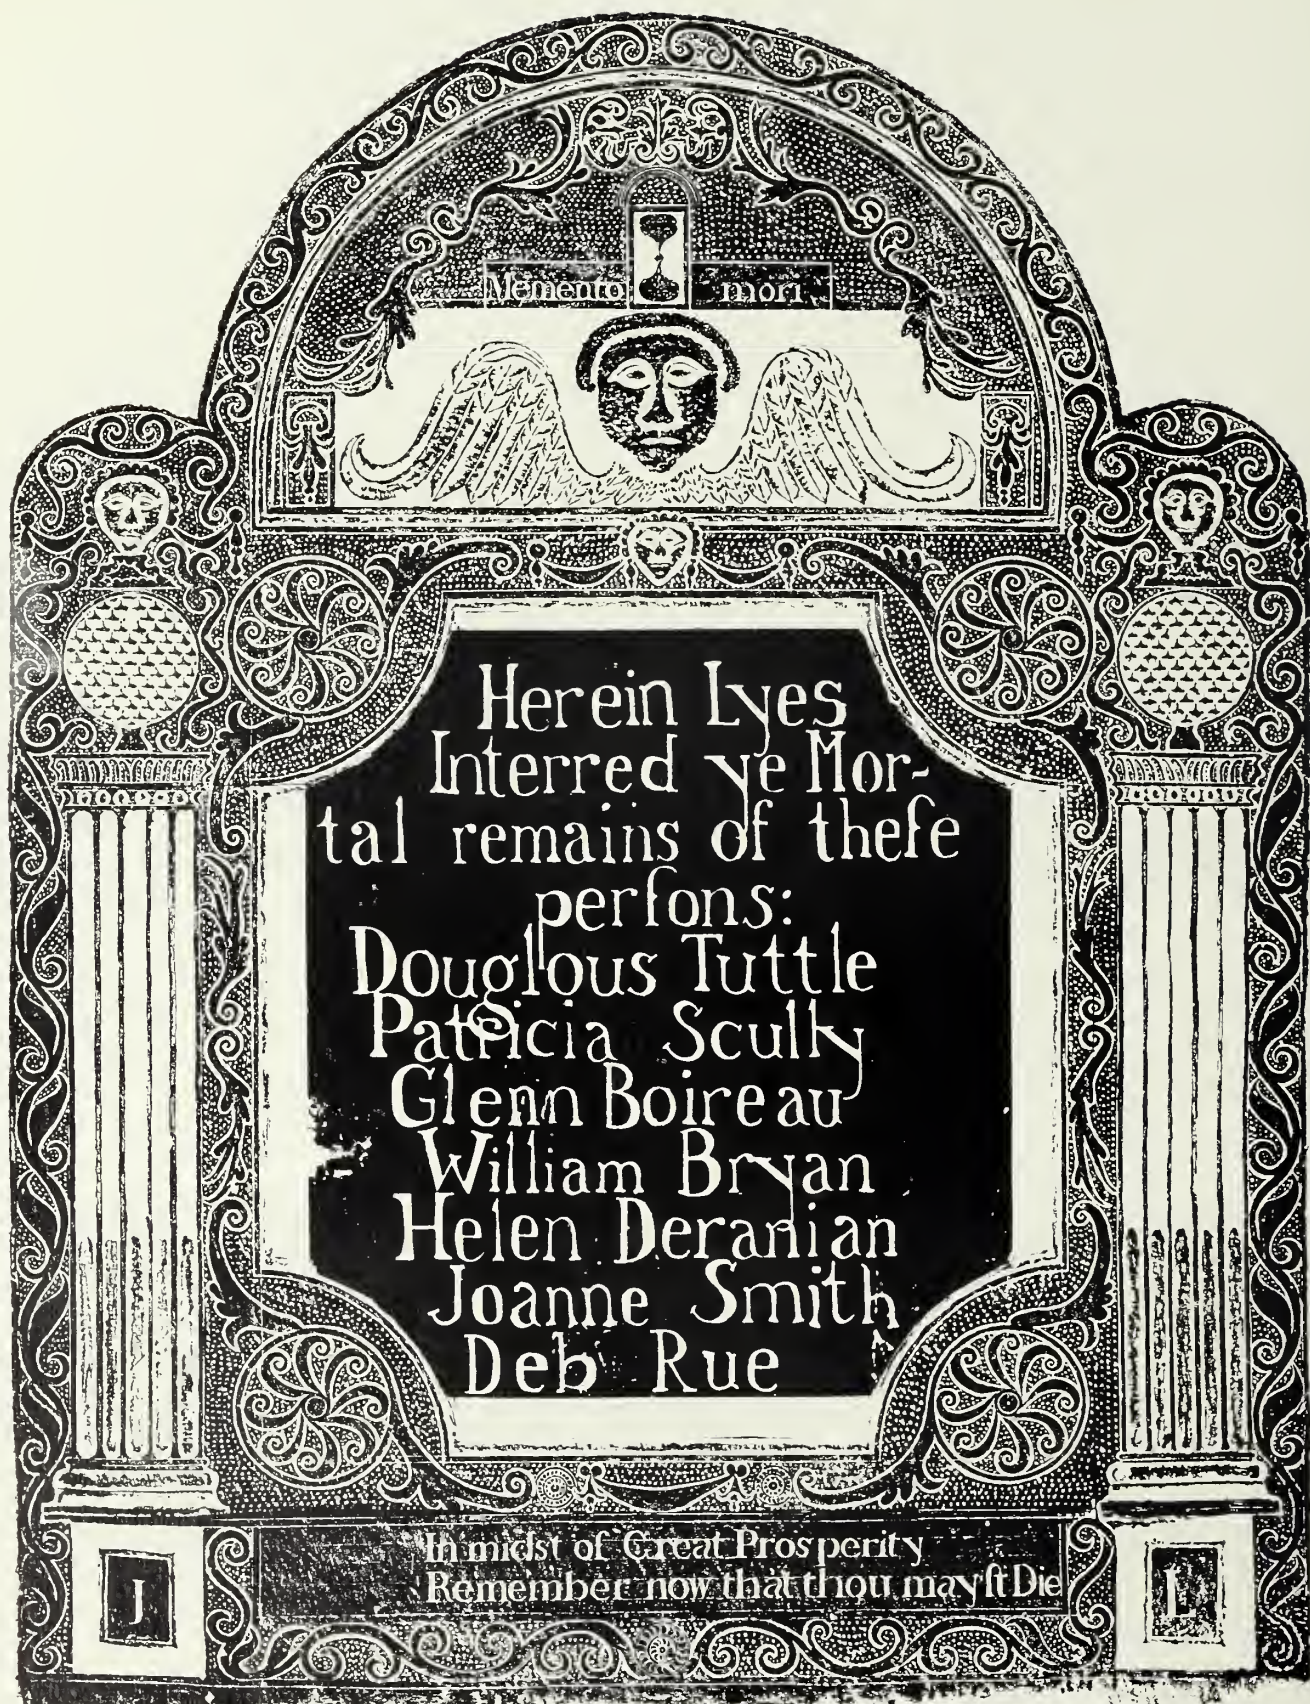 Memento mori
Herein Lyes
Interred ye Mor-
tal remains of theſe
perſons:
Douglous Tuttle
Patricia Scully
Glenn Boireau
William Bryan
Helen Deranian
Joanne Smith
Deb Rue
In midst of Great Prosperity
Remember now that thou mayſt Die
J L